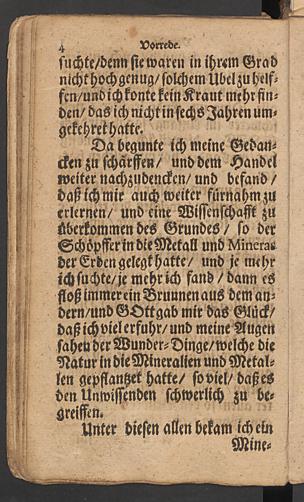 4 Vorrede.
suchte/denn sie waren in ihrem Grad
nicht hoch genug/solchem Ubel zu helf-
fen/und ich konte kein Kraut mehr fin-
den/das ich nicht in sechs Jahren um-
gekehret hatte.
Da begunte ich meine Gedan-
cken zu schärffen/ und dem Handel
weiter nachzudencken/ und befand/
daß ich mir auch weiter fürnahm zu
erlernen/ und eine Wissenschafft zu
überkommen des Grundes/ so der
Schöpffer in die Metall und Mineras
der Erden gelegt hatte/ und je mehr
ich suchte/je mehr ich fand/ dann es
floß immer ein Bruunen aus dem an-
dern/und GOtt gab mir das Glück/
daß ich viel erfuhr/und meine Augen
sahen der Wunder-Dinge/welche die
Natur in die Mineralien und Metal-
len gepflantzet hatte/ so viel/ daß es
den Unwissenden schwerlich zu be-
greiffen.
Unter diesen allen bekam ich ein
Mine-